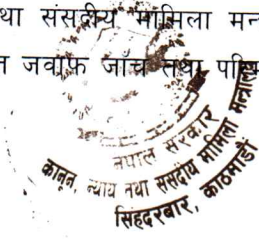 था संसदीय मामिला मन
न जवाफ जाँच तथा परि
नेपाल सरकार
कानून, न्याय तथा संसदीय मामिला मन्त्रालय
सिंहदरबार, काठमाडौं